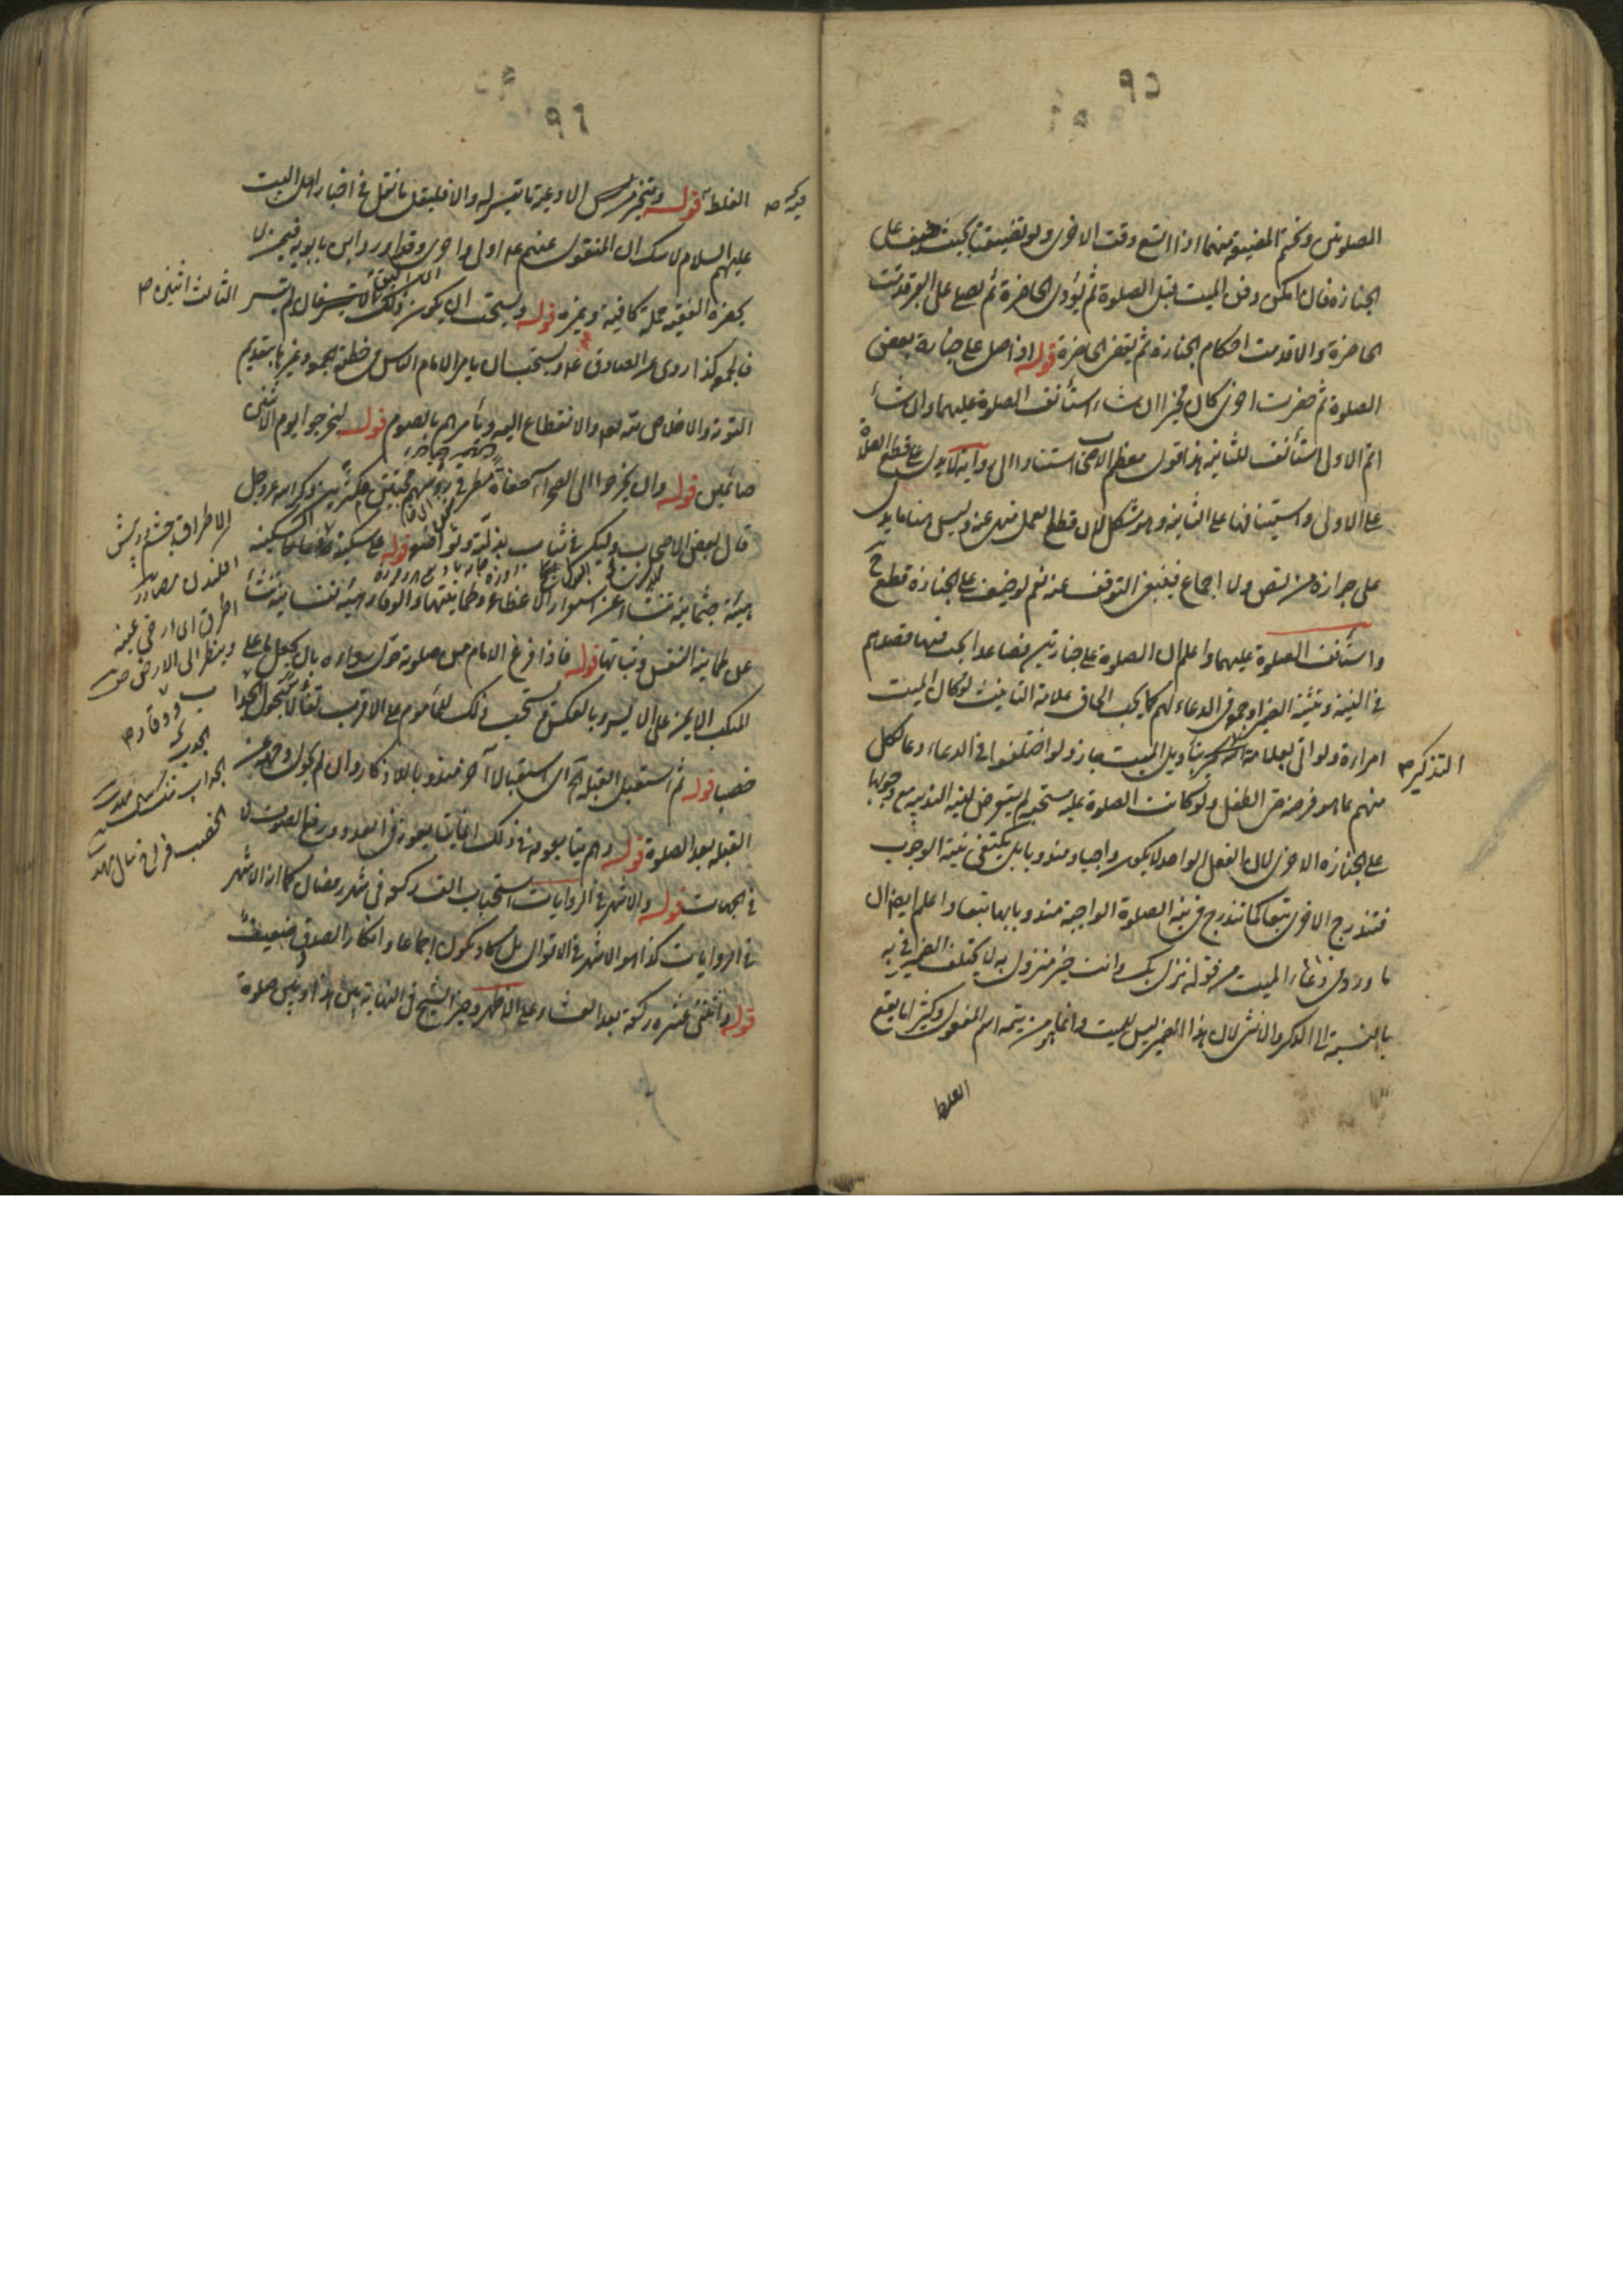 ٩٥
الصلوتين وتحتم المضيقة منهما اذا اتسع وقت الاخرى ولو تضيقتا بحيث خيف على
الجنازة فان امكن دفن الميت قبل الصلوة ثم يؤدى الحاضرة ثم يصلى على القبر قدمت
الحاضرة والا قدمت احكام الجنازة ثم يقضى الحاضرة قوله اذا صلى على جنازة بعض
الصلوة ثم حضرت اخرى كان مخيرا ان شاء استأنف الصلوة عليهما وان شاء
اتم الاولى واستأنف للثانية هذا قول معظم الاصحاب استنادا الى رواية لا يدل على قطع الصلوة
على الاولى واستينافها على الثانية وهو مشكل لان قطع العمل منهى عنه وليس هنا ما يدل
على جوازه من نص ولا اجماع فينبغى التوقف عنه نعم لو خيف على الجنازة قطع
واستأنف الصلوة عليهما واعلم ان الصلوة على جنازتين فصاعدا يجب فيها قصدهم
فى النية وتثنية الضمير او جمعه فى الدعاء لهم كما يجب الحاق علامة التأنيث لو كان الميت
امراءة ولو اتى بعلامة التذكير بتأويل الميت جاز ولو اختلفوا فى الدعاء دعا لكل
منهم بما هو فرضه حتى الطفل ولو كانت الصلوة عليه مستحبة لم يتعرض لنية الندبية مع وجوبها
على الجنازة الاخرى لان الفعل الواحد لا يكون واجبا ومندوبا بل يكتفى بنية الوجوب
فتندرج الاخرى تبعا كما تندرج فى نية الصلوة الواجبة مندوباتها تبعا واعلم ايضا ان
ما ورد فى دعاء الميت من قوله نزل بك وانت خير منزول به لا يختلف الضمير فى به
بالنسبة الى الذكر والانثى لان هذا الضمير ليس للميت وانما هو من تتمة اسم المفعول وكثيرا ما يقع
الغلط
التذكير صح
٩٦
الغلط فيه قوله ويتخير من الادعية ما تيسر له والا فليقل ما نقل فى اخبار اهل البيت
عليهم السلام لا شك ان المنقول عنهم ع اولى واحرى وقد اورد ابن بابويه فيمن لا
يحضره الفقيه جملة كافية وغيره قوله ويستحب ان يكون ذلك الثالث اثنين فان لم يتيسر
فالجمعة كذا روى عن الصادق ع ويستحب ان يأمر الامام الناس فى خطبة الجمعة وغيرها بتقديم
التوبة والاخلاص لله تعالى والانقطاع اليه ويأمرهم بالصوم قوله ليخرجوا يوم الاثنين
صائمين قوله وان يخرجوا الى الصحراء حفاة مطرقى رؤسهم مخبتين مكثرين ذكر الله عز وجل
قال بعض الاصحاب وليكن فى ثياب بذلة وتواضع قوله على سكينة ووقار السكينة
هيئة جثمانية تنشأ عن استقرار الاعضاء وطمأنينتها والوقار هيئة نفسانية تنشأ
عن طمأنينة النفس وثباتها قوله فاذا فرغ الامام من صلوته حول رداءه بان يجعل ما على
المنكب الايمن على الايسر وبالعكس يستحب ذلك للمأموم على الاقرب تفألا بتحول الجدب
خصبا قوله ثم استقبل القبلة الخ اى استقبالا آخر مندوبا للاذكار وان لم يكن وجهه عن
القبلة بعد الصلوة قوله وهم يتابعونه فى ذلك اى يتابعونه فى العدد ورفع الصوت لا
فى الجهات قوله والاشهر فى الروايات استحباب الف ركعة فى شهر رمضان كما انه الاشهر
فى الروايات كذا هو الاشهر فى الاقوال بل كاد يكون اجماعا وانكار الصدوق ضعيف
قوله واثنتى عشرة ركعة بعد العشاء على الاظهر وخير الشيخ فى النهاية بين هذا وبين صلوة
الثالث اثنين صح
الاطراق چشم در پيش
افكندن مصادر
اطرق اى ارخى عينيه
وينظر الى الارض ص